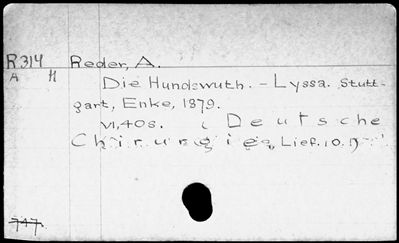 R314 Reder, A.
A H Die Hundswuth. - Lyssa. Stutt-
gart, Enke, 1879.
VI, 40 S. (Deutsche
Chirurgie, Lief. 10.)
747